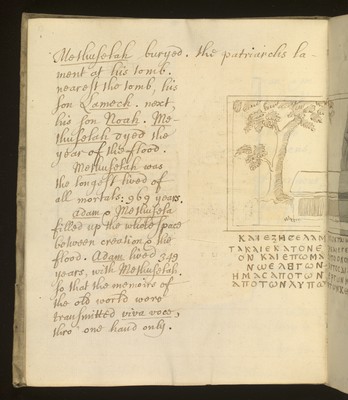 Methuselah buryed. the patriarchs la-
ment at his tomb.
nearest the tomb, his
son Lameck. next
his son Noah. Me-
thuselah dyed the
year of the flood.
Methuselah was
the longest lived of
all mortals: 969 years.
Adam & Methusela
filled up the whole space
between creation & the
flood. Adam lived 243
years, with Methuselah.
so that the memoirs of
the old world were
transmitted viva voce,
thro' one hand only.
ΚΑΙ ΕΖΗΣΕ ΛΑΜ
ΤΑΚΑΙΕΚΑΤΟΝΕ
ΟΝ ΚΑΙ ΕΠΩΜΑ
ΝΩΕ ΛΕΓΩΝ
ΗΜΑΣ ΑΠΟ ΤΩΝ
ΑΠΟ ΤΩΝ ΛΥΠΩ